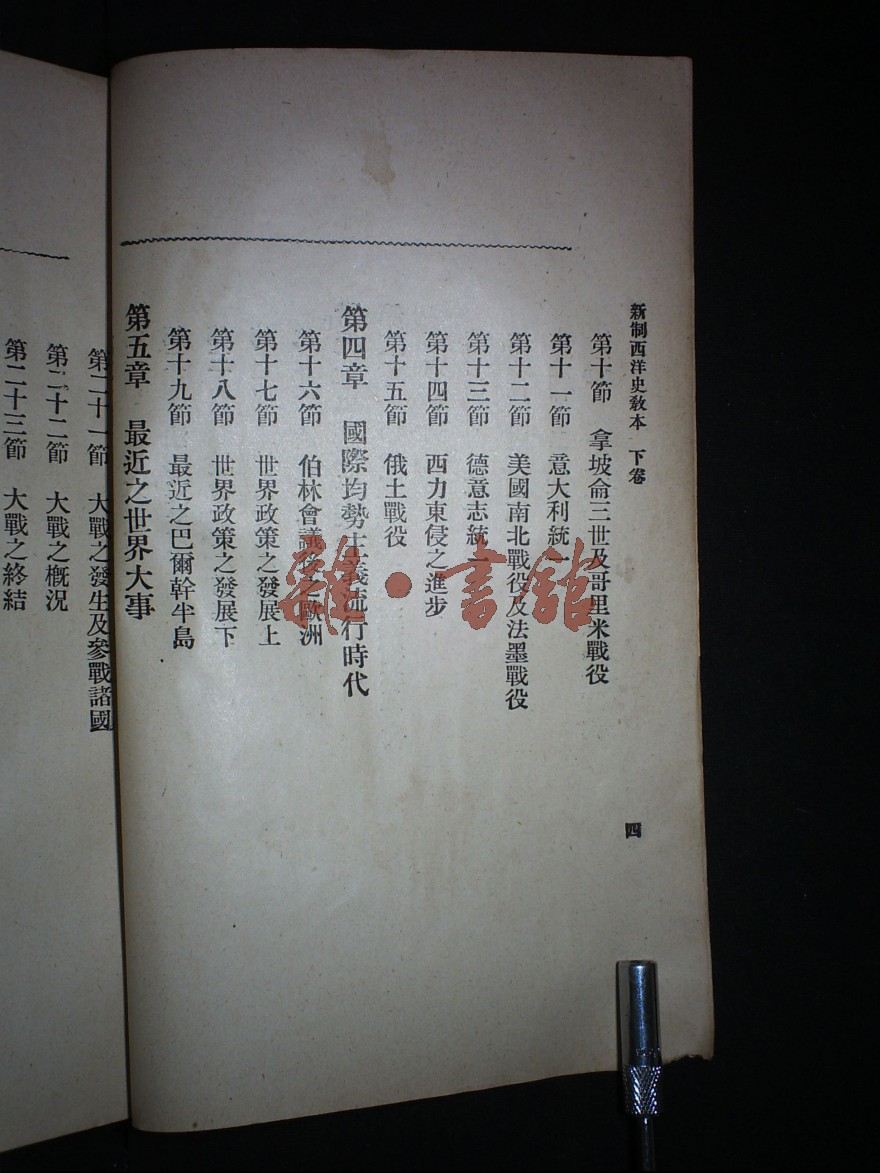 新制西洋史教本 下卷
四
第十節 拿坡侖三世及哥里米戰役
第十一節 意大利統一
第十二節 美國南北戰役及法墨戰役
第十三節 德意志統一
第十四節 西力東侵之進步
第十五節 俄土戰役
第四章 國際均勢主義流行時代
第十六節 伯林會議後之歐洲
第十七節 世界政策之發展上
第十八節 世界政策之發展下
第十九節 最近之巴爾幹半島
第五章 最近之世界大事
第二十一節 大戰之發生及參戰諸國
第二十二節 大戰之概況
第二十三節 大戰之終結
雜·書館